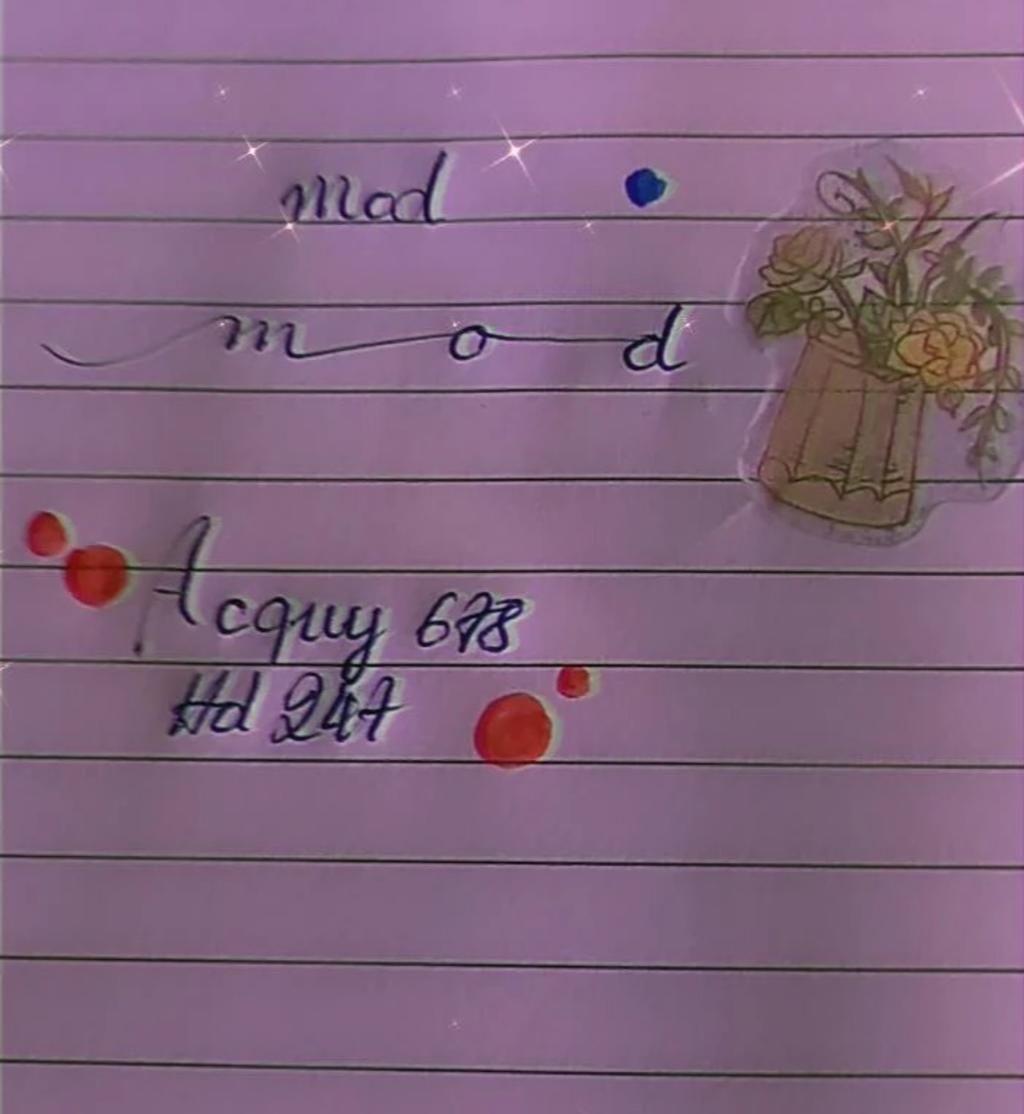 mad
mod
Acquy 678
Hd 247